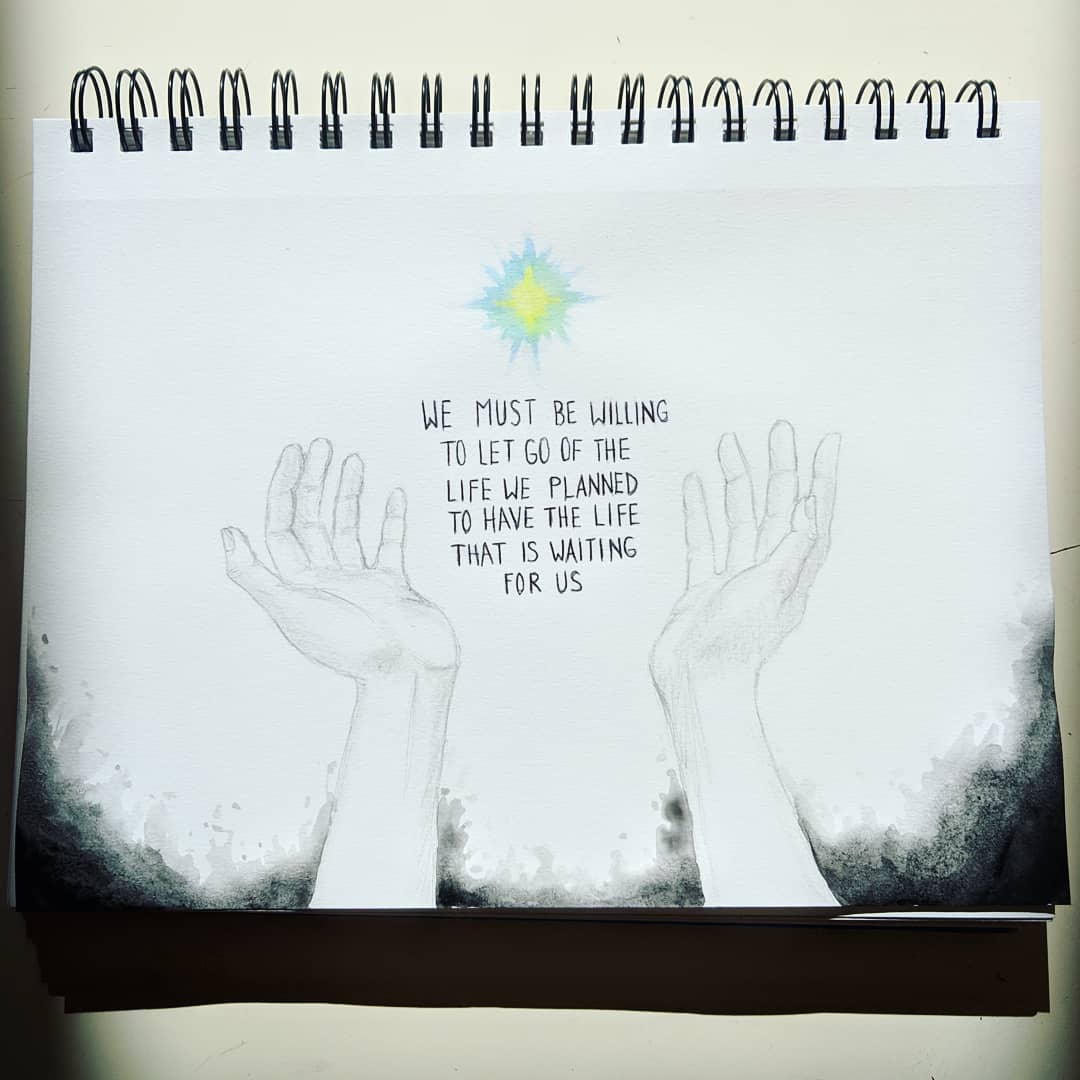 WE MUST BE WILLING
TO LET GO OF THE
LIFE WE PLANNED
TO HAVE THE LIFE
THAT IS WAITING
FOR US